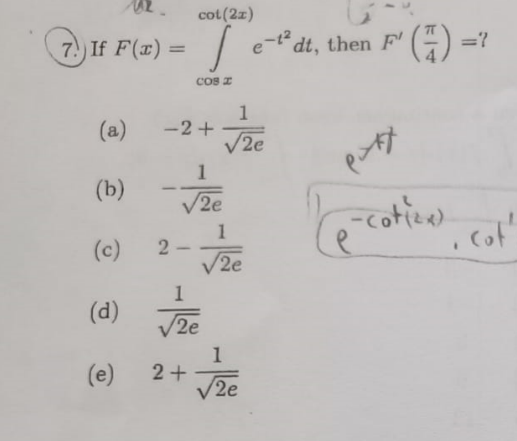 7. If F(x) = ∫_{cos x}^{cot(2x)} e^{-t²} dt, then F′(π/4) =?
(a) -2 + 1/√(2e)
(b) -1/√(2e)
(c) 2 - 1/√(2e)
(d) 1/√(2e)
(e) 2 + 1/√(2e)
e^{-cot²(2x)} . cot'